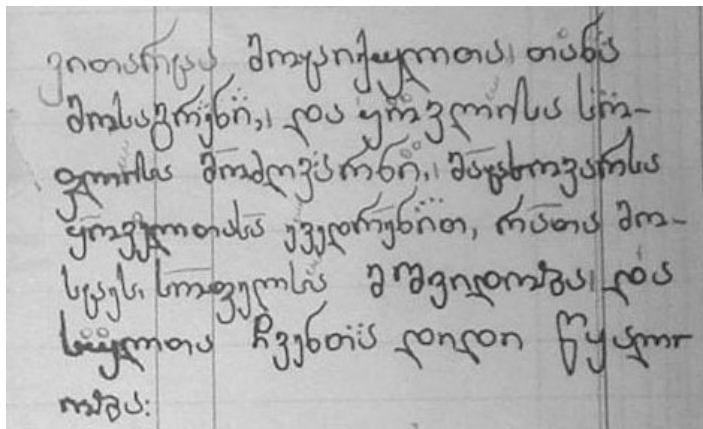 ვითარცა მოციქულთა თანა
მოსაგრენი, და ყოვლისა სო-
ფლისა მოძღვარნი, მაცხოვარსა
ყოველთასა ევედრენით, რათა მო-
სცეს სოფელსა მშვიდობა და
სულთა ჩვენთა დიდი წყალ
ობა: